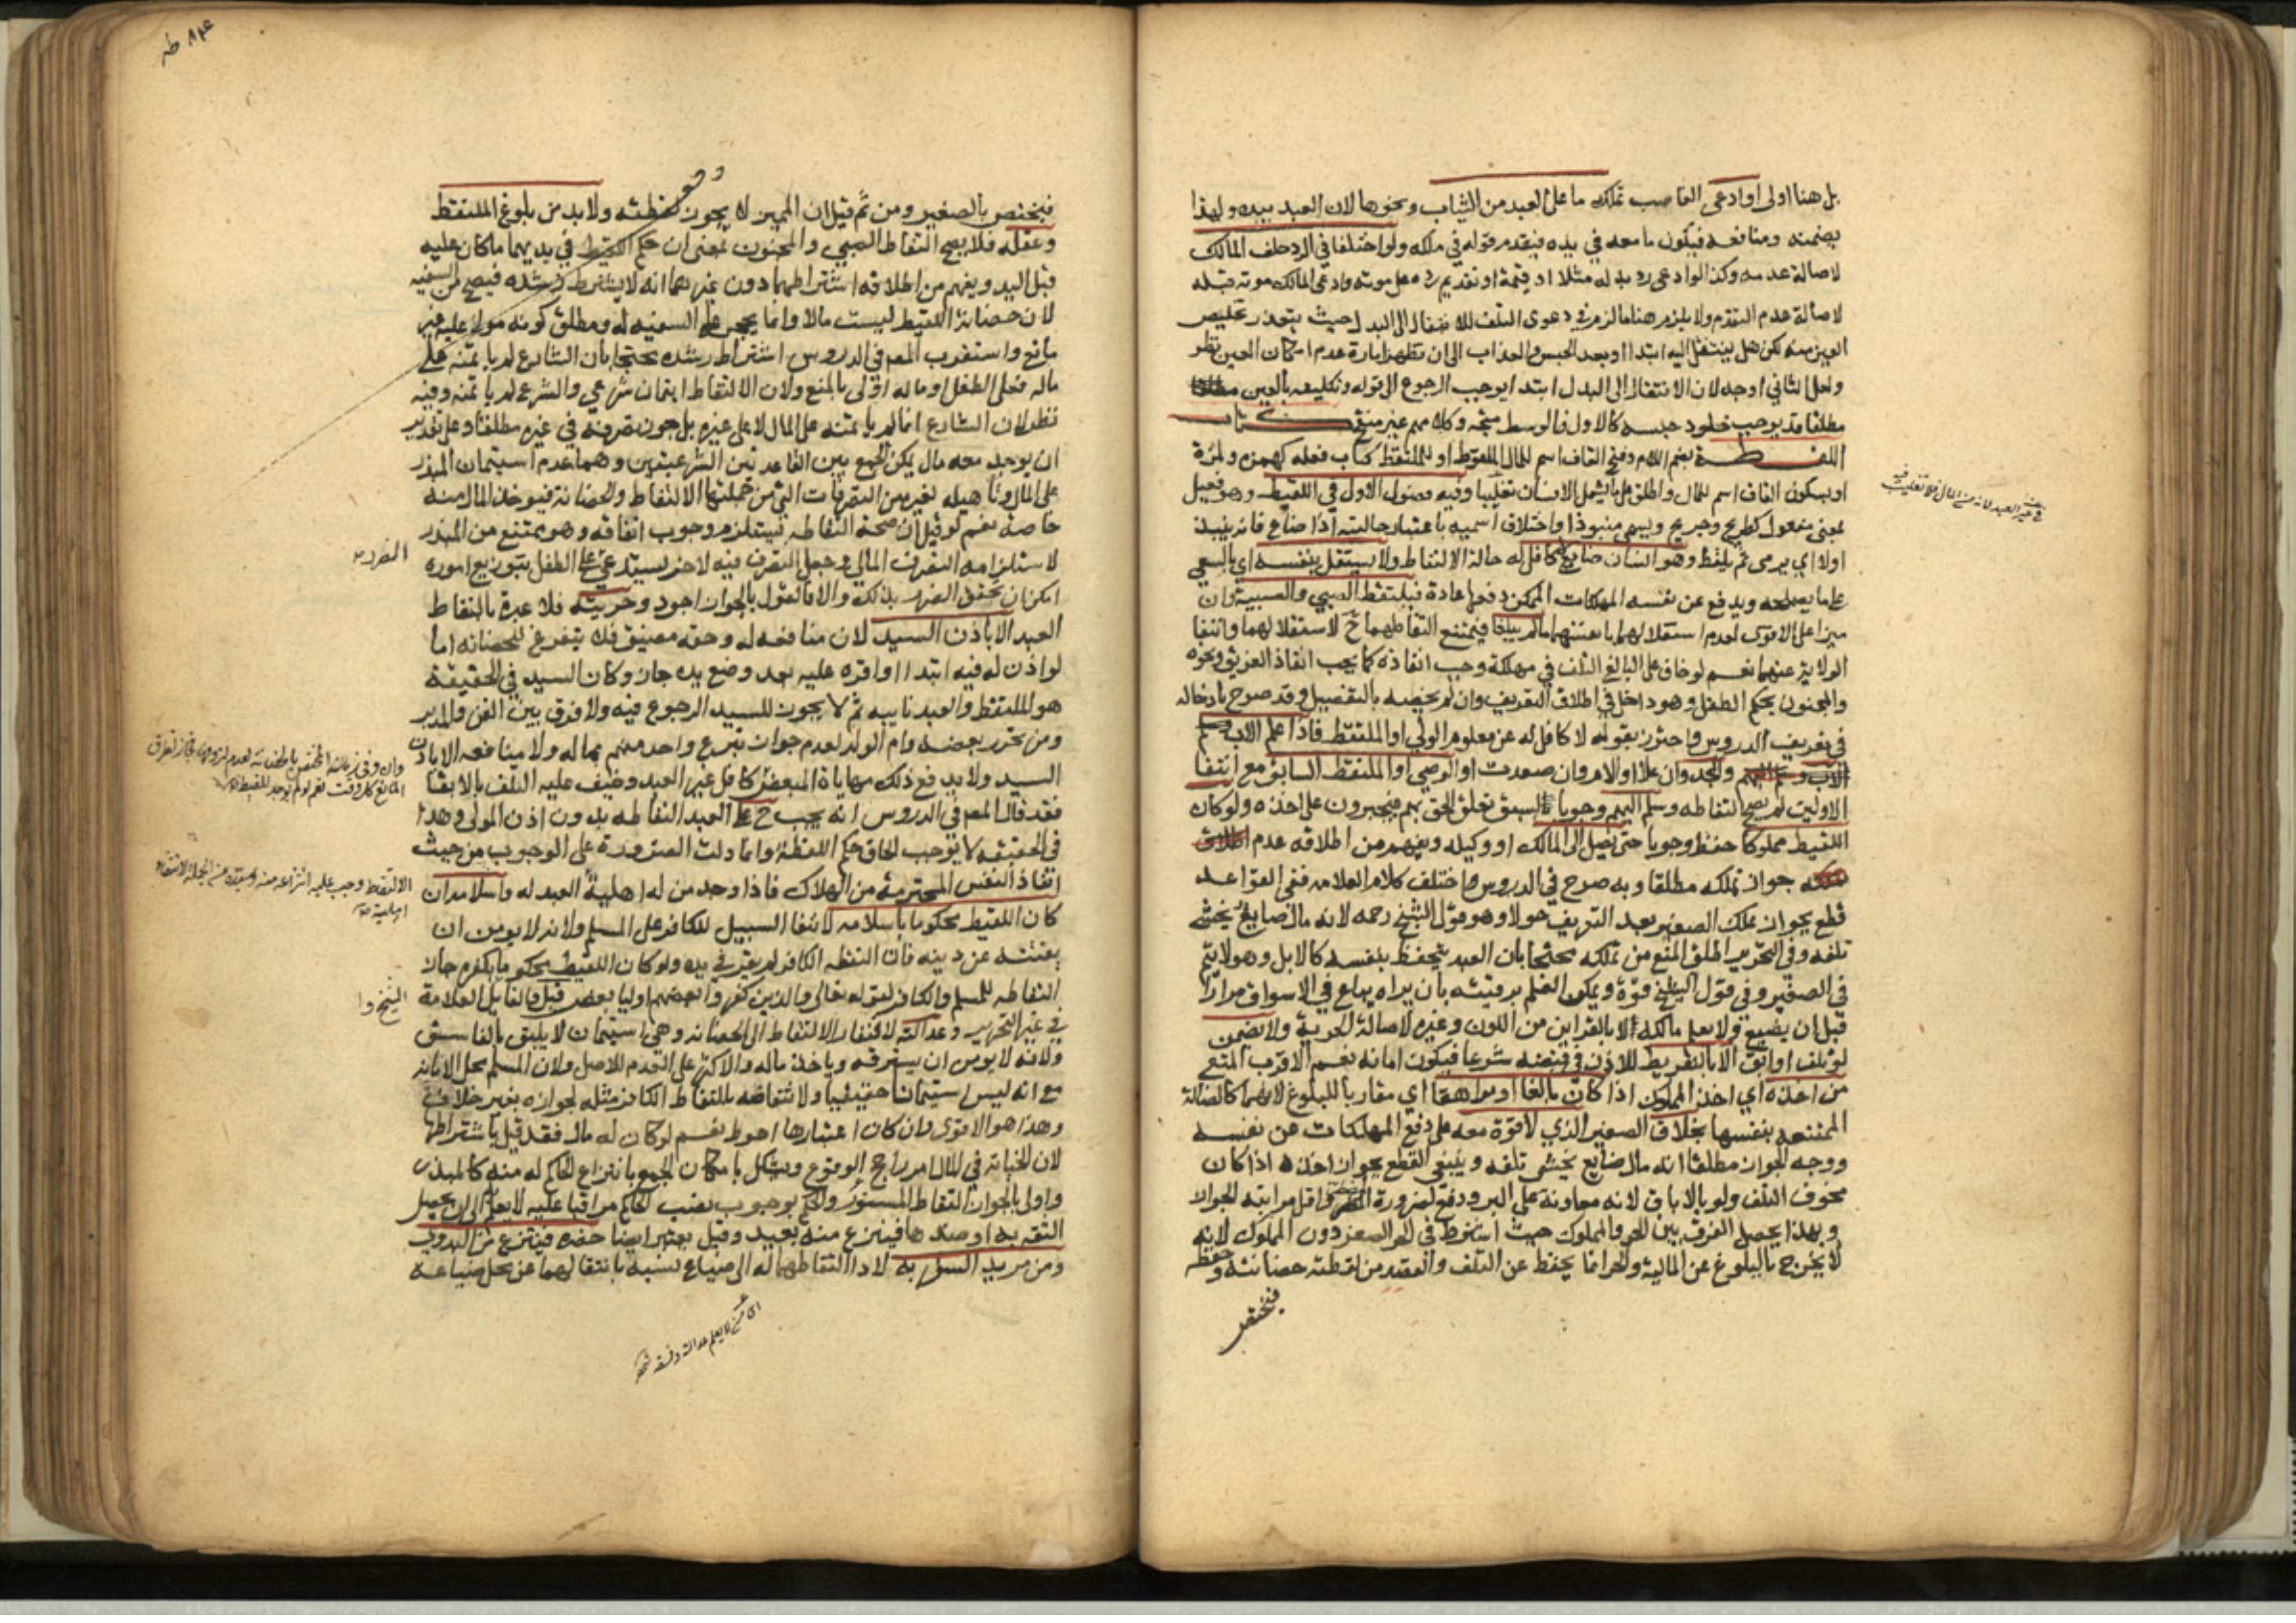 بل هنا اولى او ادعى الغاصب تملك ما على العبد من الثياب ونحوها لان العبد بيده ولهذا
يضمنه ومنافعه فيكون ما معه في يده فيقدم قوله في ملكه ولو اختلفا في الرد حلف المالك
لاصالة عدمه وكذا لو ادعى رد بدله مثلا او قيمة او تقديم رده على موته وادعى المالك موته قبله
لاصالة عدم التقدم ولا يلزم هنا ما لزم في دعوى التلف للانتقال الى البدل حيث يتعذر تخليص
العين منه لكن هل ينتقل اليه ابتداا وبعد الحبس والعذاب الى ان تظهر امارة عدم امكان العين نظر
ولعل الثاني اوجه لان الانتقال الى البدل ابتدا يوجب الرجوع الى قوله وتكليفه بالعين
مطلقا قد يوجب خلود حبسه كالاول فالوسط متجه وكلامهم غير منقح كتاب
اللقطة بضم اللام وفتح القاف اسم للمال الملقوط او للملتقط كباب فعله كهمزة ولمزة
او بسكون القاف اسم للمال واطلق على ما يشمل الانسان تغليبا وفيه فصول الاول في اللقيط وهو فعيل
بمعنى مفعول كطريح وجريح ويسمى منبوذا واختلاف اسميه باعتبار حالتيه اذا ضاع فانه ينبذ
اولا اي يرمى ثم يلقط وهو انسان ضايع لا كافل له حالة الالتقاط ولا يستقل بنفسه اي بالسعي
على ما يصلحه ويدفع عن نفسه المهلكات الممكن دفعها عادة فيلتقط الصبي والصبية وان
ميزا على الاقوى لعدم استقلالهما بانفسهما ما لم يبلغا فيمتنع التقاطهما ح لاستقلالهما وانتفا
الولاية عنهما نعم لو خاف على البالغ التلف في مهلكة وجب انقاذه كما يجب انقاذ الغريق ونحوه
والمجنون بحكم الطفل وهو داخل في اطلاق التعريف وان لم يخصه بالتفصيل وقد صرح بادخاله
في تعريف الدروس واحترز بقوله لا كافل له عن معلوم الولي او الملتقط فاذا علم الاب
والجد وان علا او الام وان صعدت او الوصي او الملتقط السابق مع انتفا
الاولين لم يصح التقاطه وسلم اليهم وجوبا لسبق تعلق الحق بهم فيجبرون على اخذه ولو كان
اللقيط مملوكا حفظ وجوبا حتى يصل الى المالك او وكيله ويفهم من اطلاقه عدم
جواز تملكه مطلقا وبه صرح في الدروس واختلف كلام العلامه ففي القواعد
قطع بجواز تملك الصغير بعد التعريف حولا وهو قول الشيخ رحمه لانه مال ضايع يخشى
تلفه وفي التحرير اطلق المنع من تملكه محتجا بان العبد يتحفظ بنفسه كالابل وهو لا يتم
في الصغير وفي قول الشيخ قوة ويمكن العلم برقيته بان يراه يباع في الاسواق مرارا
قبل ان يضيع ولا يعلم مالكه لا بالقراين من اللون وغيره لاصالة الحرية ولا يضمن
لو تلف او ابق الا بالتفريط للاذن في قبضه شرعا فيكون امانه نعم الاقرب المنع
من اخذه اي اخذ المملوك اذا كان بالغا او مراهقا اي مقاربا للبلوغ لانهما كالضالة
الممتنعه بنفسها بخلاف الصغير الذي لا قوة معه على دفع المهلكات عن نفسه
ووجه الجواز مطلقا انه مال ضايع يخشى تلفه وينبغي القطع بجواز اخذه اذا كان
مخوف التلف ولو بالاباق لانه معاونة على البر ودفع لضرورة المضطر واقل مراتبه الجواز
وبهذا يحصل الفرق بين الحر والمملوك حيث اشترط في الحر الصغر دون المملوك لانه
لا يخرج بالبلوغ عن المالية والحر انما يحفظ عن التلف والقصد من لقطته حضانته وحفظه
فيختص
فيختص بالصغير ومن ثم قيل ان المميز لا يجوز لقطته ولا بد من بلوغ الملتقط
وعقله فلا يصح التقاط الصبي والمجنون بمعنى ان حكم اللقيط في يديهما ما كان عليه
قبل اليد ويفهم من اطلاقه اشتراطهما دون غيرهما انه لا يشترط رشده فيصح من السفيه
لان حضانة اللقيط ليست مالا وانما يحجر على السفيه له ومطلق كونه مولا عليه غير
مانع واستقرب المصه في الدروس اشتراط رشده محتجا بان الشارع لم ياتمنه على
ماله فعلى الطفل وماله اولى بالمنع ولان الالتقاط ايتمان شرعي والشرع لم ياتمنه وفيه
نظر لان الشارع انما لم ياتمنه على المال لا على غيره بل جوز تصرفه في غيره مطلقا وعلى تقدير
ان يوجد معه مال يمكن الجمع بين القاعدتين الشرعيتين وهما عدم استيمان المبذر
على المال وتاهيله لغيره من التصرفات التي من جملتها الالتقاط والحضانة فيوخذ المال منه
خاصة نعم لو قيل ان صحة التقاطه يستلزم وجوب انفاقه وهو ممتنع من المبذر
لاستلزامه التصرف المالي وجعل التصرف فيه لاخر يستدعي على الطفل بتوزيع اموره
امكن ان تحقق الضرر بذلك والا فالقول بالجواز اجود وحريته فلا عبرة بالتقاط
العبد الا باذن السيد لان منافعه له وحقه مضيق فلا يتفرغ للحضانه اما
لو اذن له فيه ابتداا واقره عليه بعد وضع يده جاز وكان السيد في الحقيقة
هو الملتقط والعبد نايبه ثم لا يجوز للسيد الرجوع فيه ولا فرق بين القن والمدبر
ومن تحرر بعضه وام الولد لعدم جواز تبرع واحد منهم بماله ولا منافعه الا باذن
السيد ولا يدفع ذلك مهاياة المبعض كافل غير العبد وخيف عليه التلف بالابقا
فقد قال المصه في الدروس انه يجب ح على العبد التقاطه بدون اذن المولى وهذا
في الحقيقه لا يوجب الحاق حكم اللقطة وانما دلت الضرورة على الوجوب من حيث
انقاذ النفس المحترمة من الهلاك فاذا وجد من له اهلية العبد له واسلامه ان
كان اللقيط محكوما باسلامه لانتفا السبيل للكافر على المسلم ولانه لا يومن ان
يفتنه عن دينه فان التقطه الكافر لم يقر في يده ولو كان اللقيط محكوما بكفره جاز
التقاطه للمسلم والكافر لقوله تعالى والذين كفروا بعضهم اوليا بعض قيل والقايل العلامة
في غير التحرير وعدالته لافتقار الالتقاط الى الحضانه وهي استيمان لا يليق بالفاسق
ولانه لا يومن ان يسترقه وياخذ ماله والاكثر على العدم للاصل ولان المسلم محل الامانه
مع انه ليس استيمانا حقيقيا ولانتقاضه بالتقاط الكافر مثله لجوازه بغير خلاف
وهذا هو الاقوى وان كان اعتبارها احوط نعم لو كان له مال فقد قيل باشتراطها
لان الخيانه في المال امر راجح الوقوع ويشكل بامكان الجمع بانتزاع الحاكم له منه كالمبذر
واولى بالجواز التقاط المستور والحكم بوجوب نصب الحاكم مراقبا عليه لا يعلم الى ان يحصل
الثقه به او ضدها فينتزع منه بعيد وقيل يعتبر ايضا حضره فينتزع من البدوي
ومن مريد السفر به لاداا التقاطهما له الى ضياع نسبه بانتقالهما عن محل ضياعه